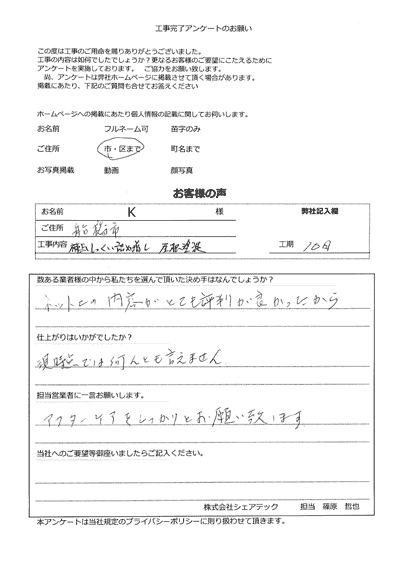 工事完了アンケートのお願い
この度は工事のご用命を賜りありがとうございました。
工事の内容は如何でしたでしょうか？更なるお客様のご要望にこたえるために
アンケートを実施しております。 ご協力をお願い致します。
尚、アンケートは弊社ホームページに掲載させて頂く場合があります。
掲載にあたり、下記のご質問も合せてお答えください
ホームページへの掲載にあたり個人情報の記載に関してお伺いします。
お名前 フルネーム可 苗字のみ
ご住所 市・区まで 町名まで
お写真掲載 動画 顔写真
お客様の声
お名前 K 様 弊社記入欄
ご住所 船橋市
工事内容 棟瓦しっくい詰め増し 屋根塗装 工期 10日
数ある業者様の中から私たちを選んで頂いた決め手はなんでしょうか？
ネット上の内容がとても評判が良かったから
仕上がりはいかがでしたか？
現時点では何んとも言えません
担当営業者に一言お願いします。
アフターケアをしっかりとお願い致します
当社へのご要望等御座いましたらご記入ください。
株式会社シェアテック 担当 篠原 哲也
本アンケートは当社規定のプライバシーポリシーに則り扱わせて頂きます。